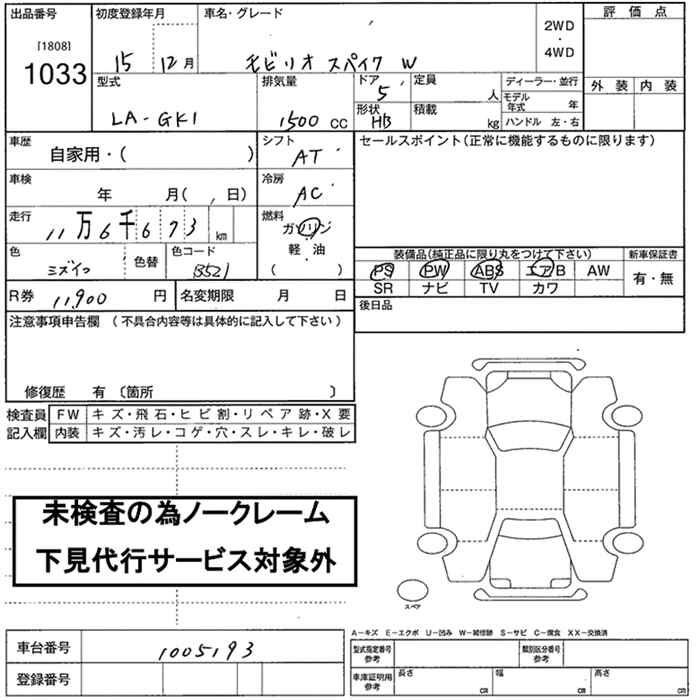 出品番号 初度登録年月 車名・グレード 2WD ・ 4WD 評価点
[1808]
1033 15 12月 モビリオ スパイク W
型式 排気量 ドア 5 定員 人 ディーラー・並行 外装 内装
LA-GK1 1500 CC 形状 HB 積載 kg モデル年式 年
ハンドル 左・右
車歴 自家用・( ) シフト AT セールスポイント(正常に機能するものに限ります)
車検 年 月( , 日) 冷房 AC
走行 11万6千673 km 燃料 ガソリン
軽・油
( )
色 ミズイロ 色替 色コード B521 装備品(純正品に限り丸をつけて下さい) 新車保証書
PS PW ABS エアB AW 有・無
SR ナビ TV カワ
R券 11,900 円 名変期限 月 日 後日品
注意事項申告欄(不具合内容等は具体的に記入して下さい)
修復歴 有 〔箇所 〕
検査員 FW キズ・飛石・ヒビ割・リペア跡・X要
記入欄 内装 キズ・汚レ・コゲ・穴・スレ・キレ・破レ
未検査の為ノークレーム
下見代行サービス対象外
スペア
A-キズ E-エクボ U-凹み W-補修跡 S-サビ C-腐食 XX-交換済
車台番号 1005193 型式指定番号 参考 類別区分番号 参考
登録番号 車庫証明用 参考 長さ cm 幅 cm 高さ cm